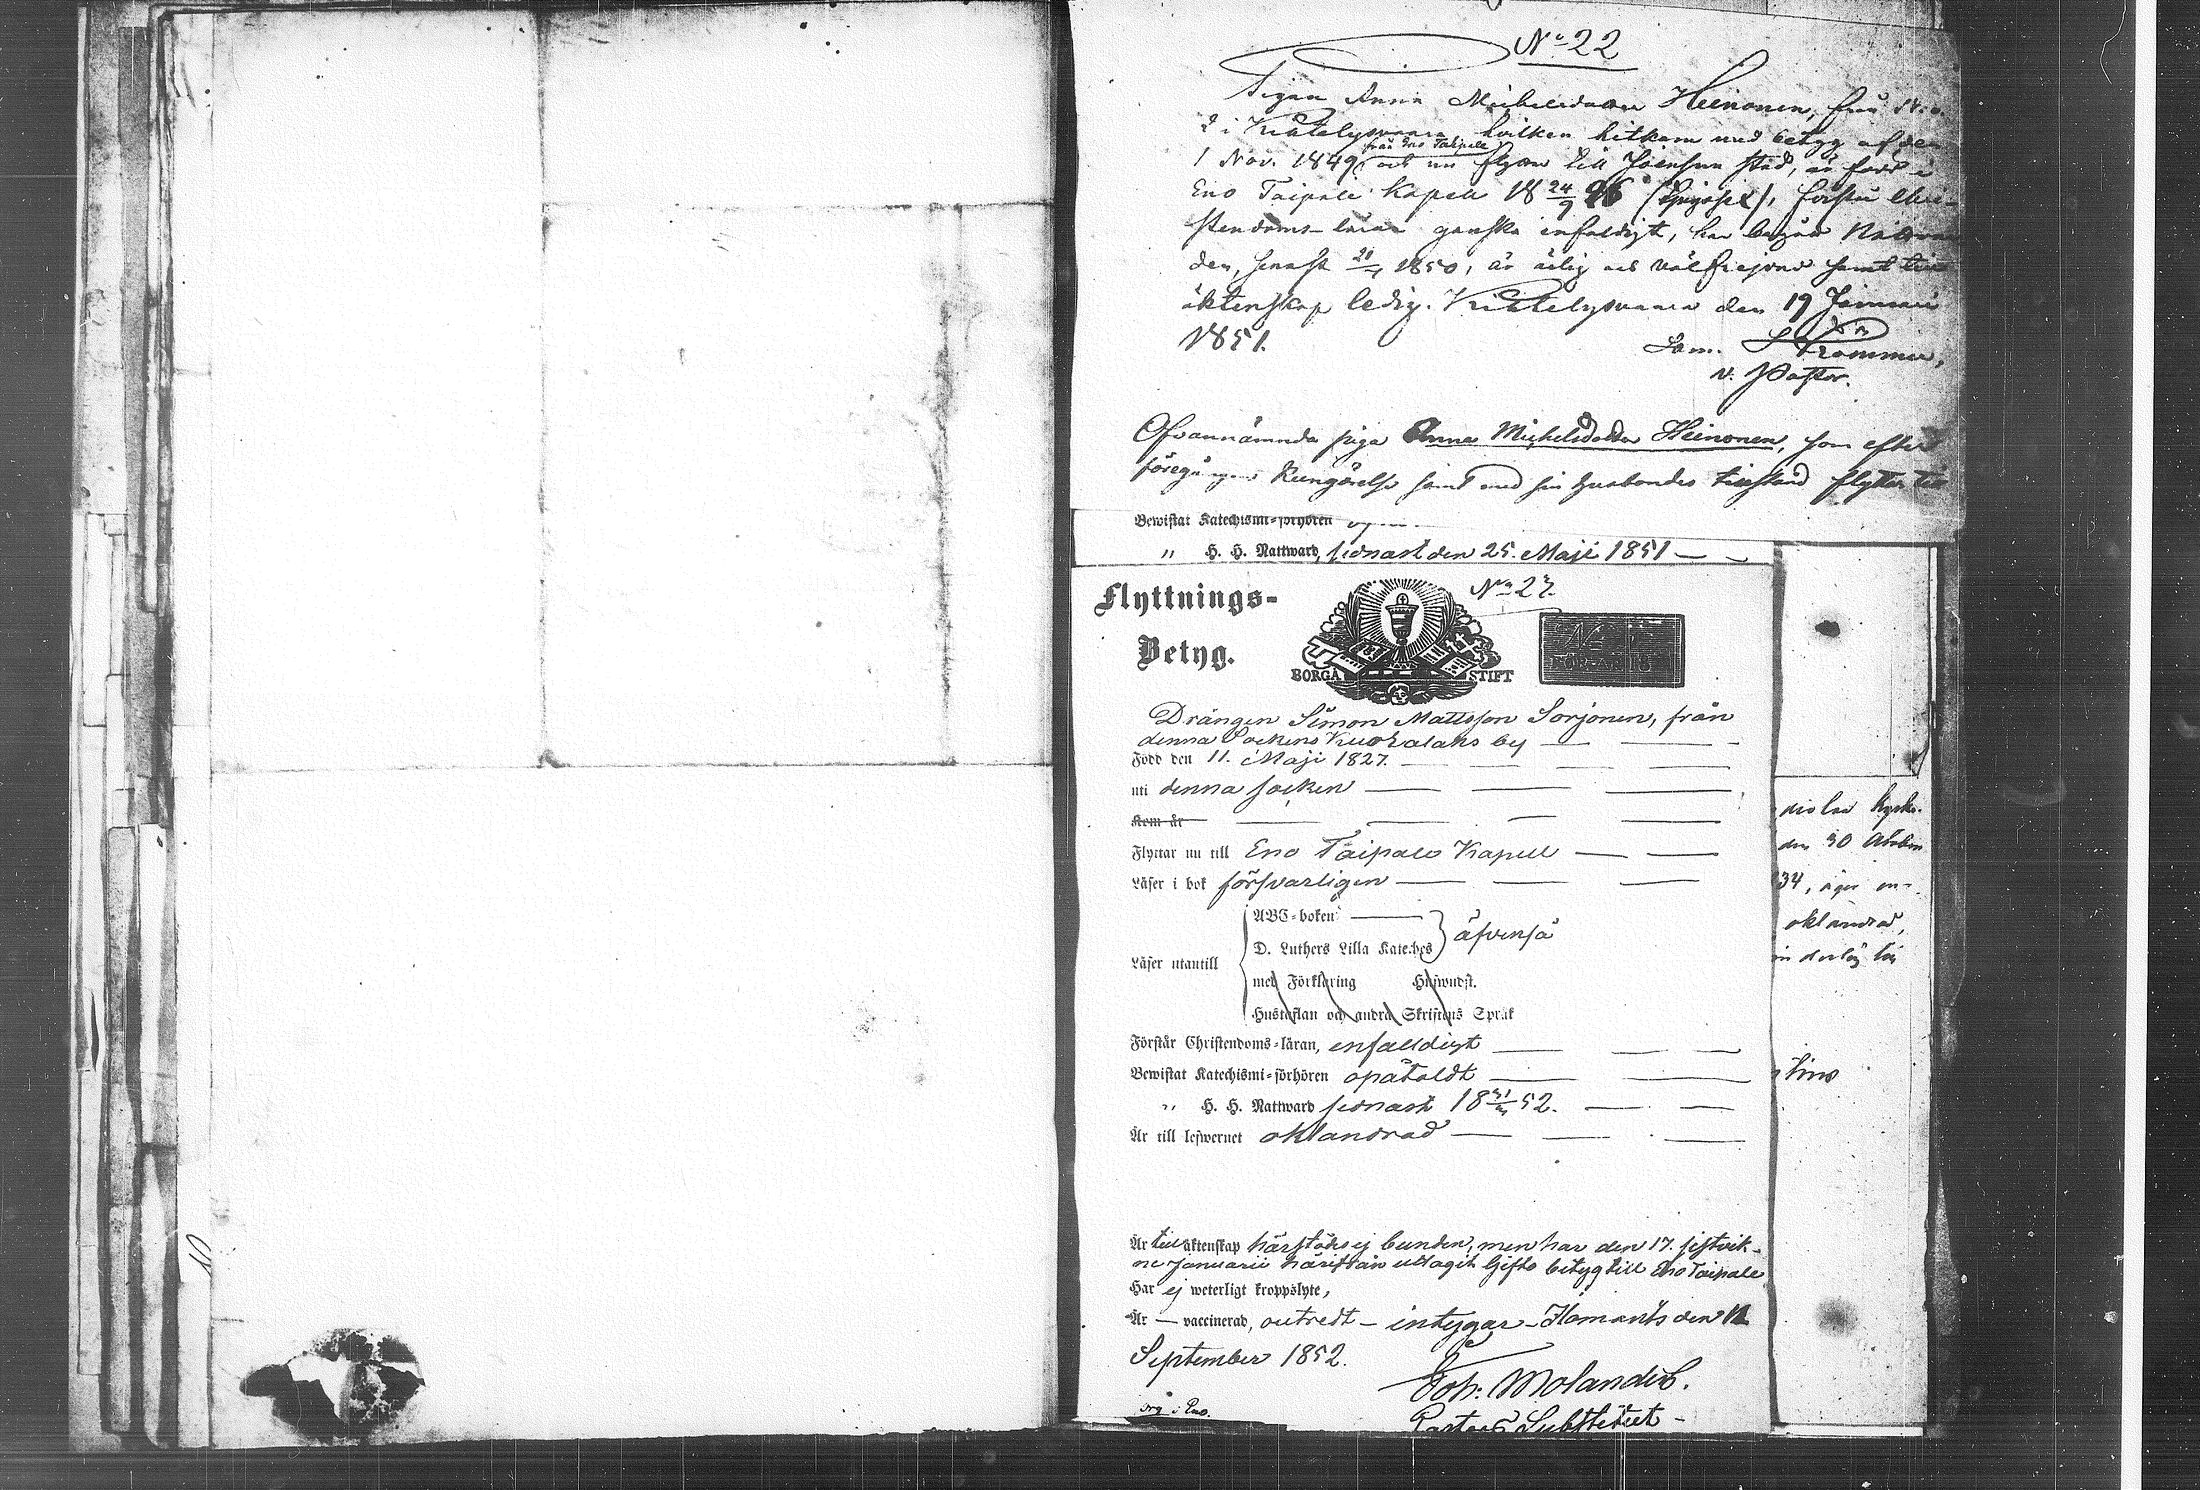 No 22
Pigan Anna Michelsdotter Heinonen, från No
2 i Kiihtelysvaara, hvilken hitkom med betyg af den
från Eno Taipale
1 Nov. 1849, och nu flyttar till Joensuu stad, är född i
Eno Taipale Kapell 18 24/9 26, förstår Chri-
stendoms-läran ganska enfaldigt, har begått Nattvar
den, senast 1850, är ärlig och välfrejdad samt till
äktenskap ledig. Kiihtelysvaara den 19 Januari
1851.
Sam.
v. Pastor.
Ofvannämnda piga Anna Michelsdotter Heinonen, som efter
föregången Kungörelse samt med sin husbondes tillstånd flyttar till
Bewistat Katechismi-förhören
„ H. H. Nattward, sednast den 25. Maji 1851
Flyttnings-
Betyg.
No 23.
BORGÅ STIFT
FÖR ÅR 18
Drängen Simon Mattsson Sorjonen, från
denna Sockens Kuoralaks by
Född den 11. Maji 1827.
uti denna socken
Kom år
Flyttar nu till Eno Taipale Kapell
Läser i bok försvarligen
Läser utantill
ABC-boken
D. Luthers Lilla Kateches
äfvenså
med Förklaring Hufwudst.
Hustaflan och andra Skriftens Språk
Förstår Christendoms-läran, enfalldigt
Bewistat Katechismi-förhören opåtaldt
„ H. H. Nattward sednast 18 52.
Är till lefwernet oklandrad
Är till äktenskap härstädes ej bunden, men har den 17. sistvik-
ne Januarii härifrån uttagit Gifto betyg till Eno Taipale
Har ej weterligt kroppslyte,
Är — vaccinerad, outredt — intygar — Ilomants den 12
September 1852.
Joh: Molander.
Pastors Substitut
org i Eno.
diola Kyrko-
den 30 Octobr
34, äger en-
oklandrad,
10